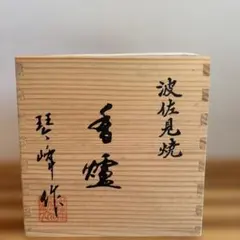 波佐見焼
香爐
琴峰作